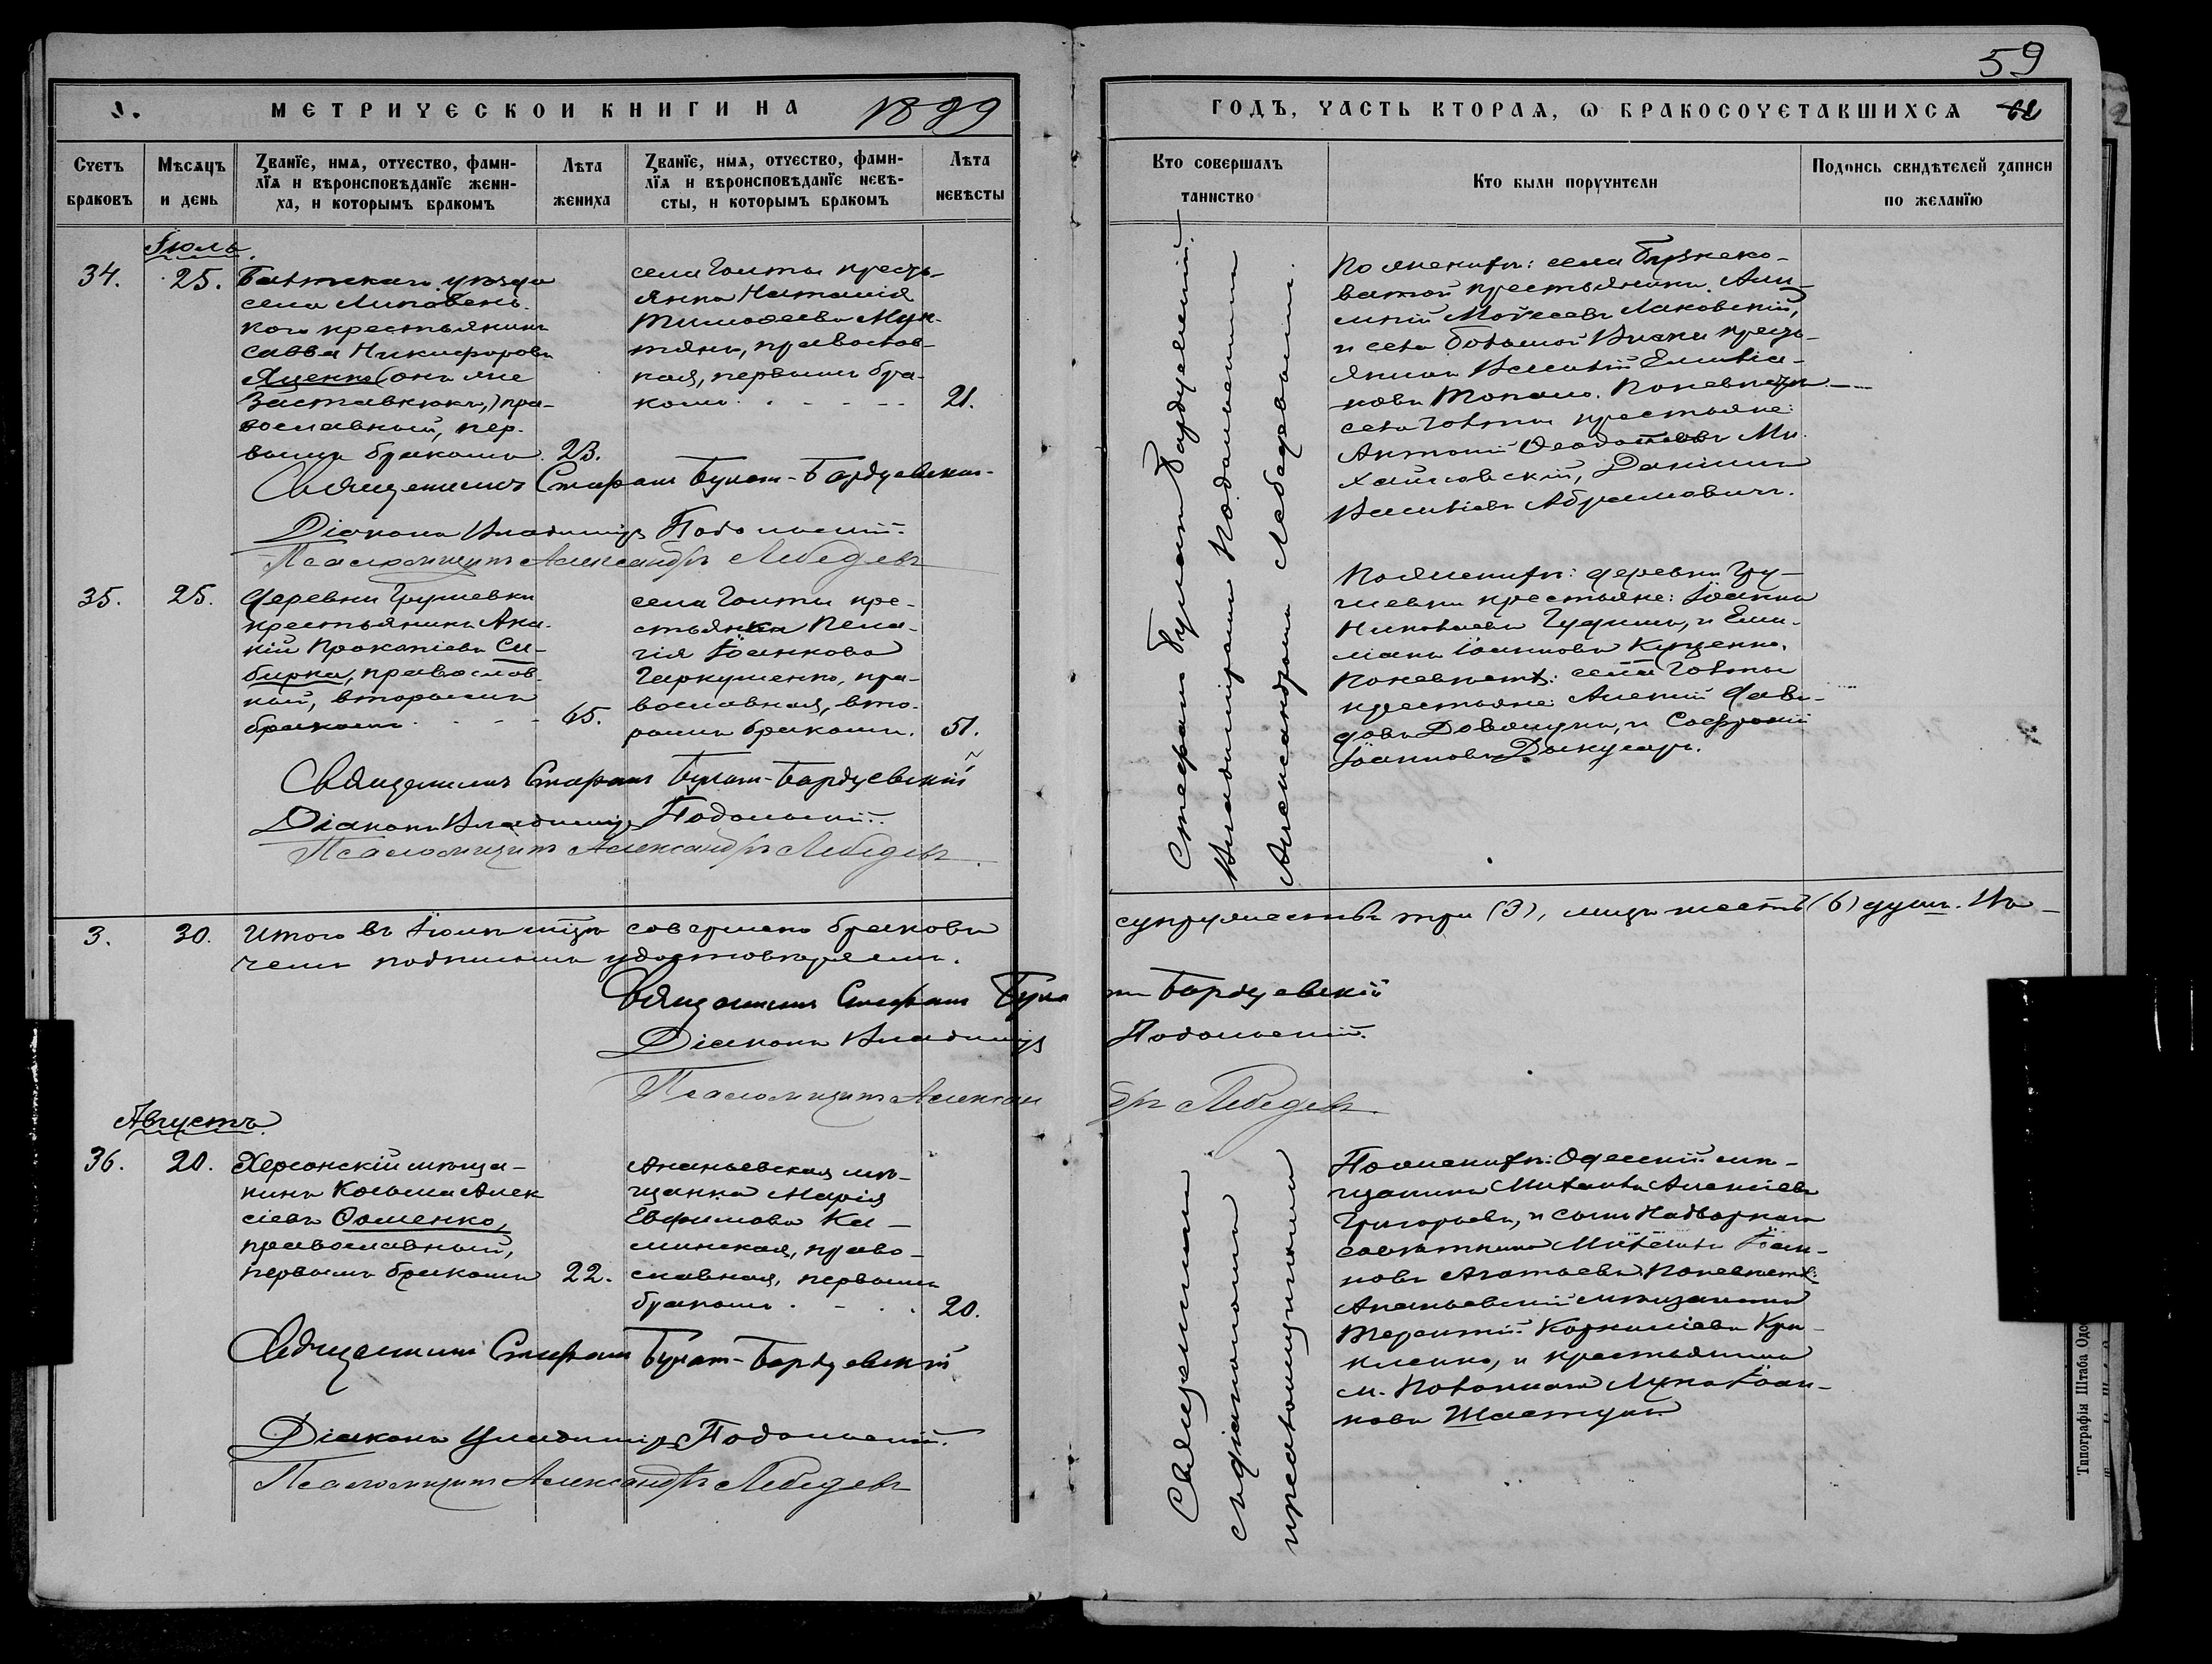 59
МЕТРИЧЕСКОЙ КНИГИ НА 1899
ГОДЪ, ЧАСТЬ ВТОРАЯ, Ѡ БРАКОСОЧЕТАВШИХСЯ
Счетъ браковъ
Мѣсяцъ и день
Званїе, имя, отчество, фами-
лїя и вѣроисповѣданїе жени-
ха, и которымъ бракомъ
Лѣта жениха
Званїе, имя, отчество, фами-
лїя и вѣроисповѣданїе невѣ-
сты, и которымъ бракомъ
Лѣта невѣсты
Кто совершалъ таинство
Кто были поручители
Подпись свидѣтелей записи по желанїю
Іюль.
34.
25.
Балтскаго уѣзда
села Липовень-
каго крестьянинъ
Савва Никифоровъ
Яценко (онъ же
Заставнюкъ,) пра-
вославный, пер-
вымъ бракомъ.
23.
села Голты кресть-
янка Наталія
Тимоѳеева Мун-
тянъ, православ-
ная, первымъ бра-
комъ
21.
Священникъ Стефанъ Булат-Бардуевский
Діаконъ Владиміръ Подольскій.
Псаломщикъ Александръ Лебедевъ
Стефанъ Булатъ Бардуевскій.
Владиміромъ Подольскимъ
Александромъ Лебедевымъ.
По женихѣ: села Бузнико-
ватой крестьянинъ
Мойсеевъ Лаковскій,
и села Большой Виски кресть-
янинъ Василій Емиліа-
новъ Топало. По невѣстѣ:
села Голты крестьяне:
Антоній Ѳеодотовъ Ми-
хайловскій, Даніилъ
Василіевъ Абрамовичъ.
35.
25.
деревни Грушевки
крестьянинъ Ака-
кій Прокопіевъ Си-
бирка, православ-
ный, вторымъ
бракомъ
65.
села Голты кре-
стьянка Пела-
гія Іоаннова
Гаркушенко, пра-
вославная, вто-
рымъ бракомъ.
51.
По женихѣ: деревни Гру-
шевки крестьяне: Іоаннъ
Николаевъ и Еми-
ліанъ Іоанновъ Куценко.
По невѣстѣ: села Голты
крестьяне: Алексій Дави-
довъ и Софроній
Іоанновъ
Священникъ Стефанъ Булат-Бардуевскій
Діаконъ Владиміръ Подольскій.
Псаломщикъ Александръ Лебедевъ.
3.
30.
Итого въ Іюлѣ мѣцѣ совершено браковъ супружествъ три (3), лицъ шесть (6) душъ. Въ
чемъ подписомъ удостовѣряемъ.
Священникъ Стефанъ Булатъ Бардуевскій
Діаконъ Владиміръ Подольскій.
Псаломщикъ Александръ Лебедевъ.
Августъ.
36.
20.
Херсонскій мѣща-
нинъ Косьма Алек-
сіевъ Ѳоменко,
православный,
первымъ бракомъ
22.
Ананьевская мѣ-
щанка Марія
Евфимова Ка-
минская, право-
славная, первымъ
бракомъ
20.
Священникомъ
съ діакономъ
и псаломщикомъ
По женихѣ: Одесскій мѣ-
щанинъ Михаилъ Алексіевъ
Григорьевъ, и сынъ Надворнаго
совѣтника Михаилъ Іоан-
новъ Агатьевъ. По невѣстѣ:
Ананьевскій мѣщанинъ
Терентій Корниліевъ Кри-
клепко, и крестьянинъ
м. Лука Іоан-
новъ Шастунъ
Священникъ Стефанъ Булат-Бардуевскій
Діаконъ Владиміръ Подольскій.
Псаломщикъ Александръ Лебедевъ
Типографія Штаба Одес